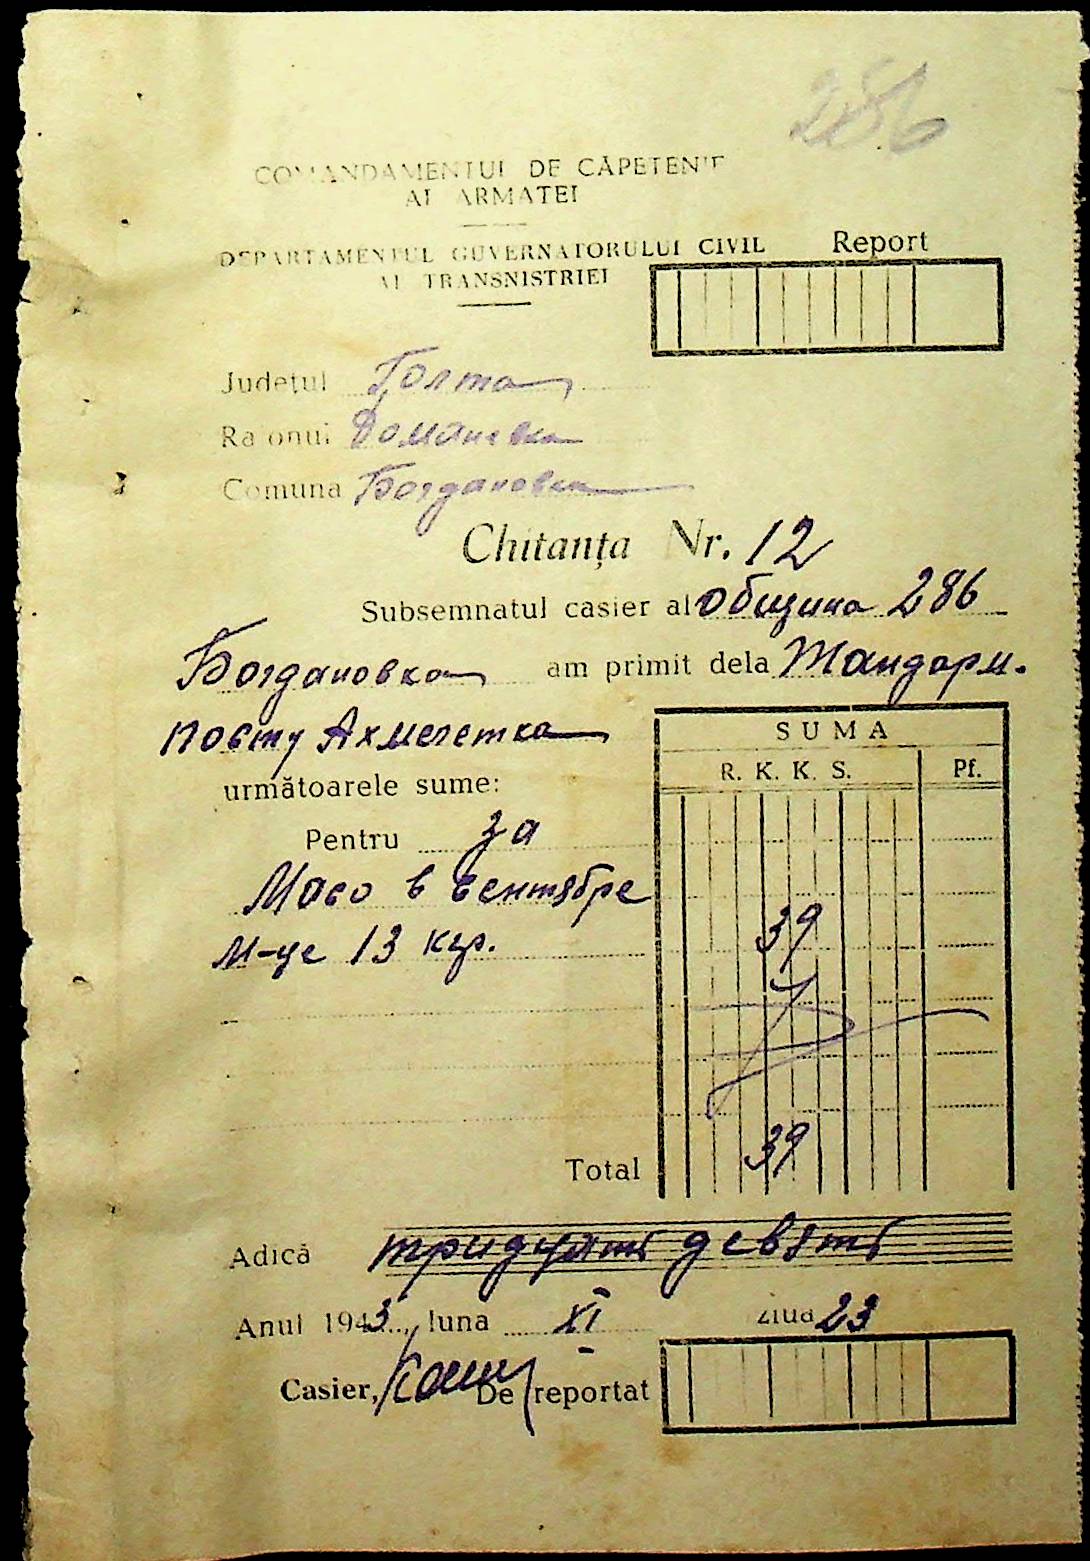 286
COMANDAMENTUL DE CĂPETENIE
AL ARMATEI
DEPARTAMENTUL GUVERNATORULUI CIVIL
AL TRANSNISTRIEI
Report
Județul Голта
Raionul Доманевка
Comuna Богдановка
Chitanța Nr. 12
Subsemnatul casier al община 286
Богдановка am primit dela Жандарм.
посту Ахмечетка
SUMA
R. K. K. S. Pf.
următoarele sume:
Pentru за
Мясо в сентябре
м-це 13 кгр. 39
Total 39
Adică тридцать девять
Anul 1943, luna XI ziua 23
Casier, De reportat